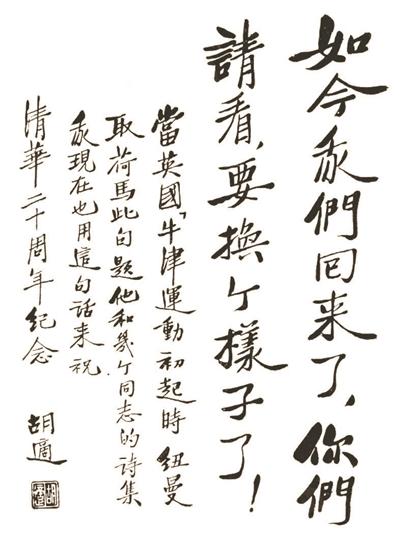 如今我們回来了、你們
請看，要換个樣子了！
當英國「牛津運動初起時 紐曼
取荷馬此句題他和幾个同志的詩集
我現在也用這句話来祝
清華二十周年紀念
胡適